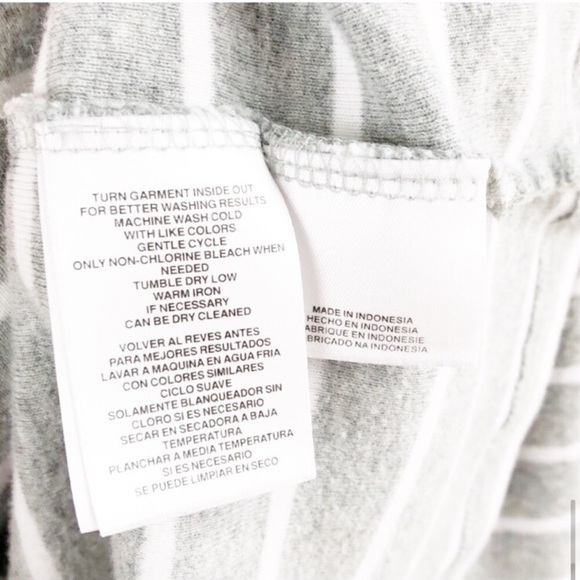 TURN GARMENT INSIDE OUT
FOR BETTER WASHING RESULTS
MACHINE WASH COLD
WITH LIKE COLORS
GENTLE CYCLE
ONLY NON-CHLORINE BLEACH WHEN
NEEDED
TUMBLE DRY LOW
WARM IRON
IF NECESSARY
CAN BE DRY CLEANED
VOLVER AL REVES ANTES
PARA MEJORES RESULTADOS
LAVAR A MAQUINA EN AGUA FRIA
CON COLORES SIMILARES
CICLO SUAVE
SOLAMENTE BLANQUEADOR SIN
CLORO SI ES NECESARIO
SECAR EN SECADORA A BAJA
TEMPERATURA
PLANCHAR A MEDIA TEMPERATURA
SI ES NECESARIO
SE PUEDE LIMPIAR EN SECO
MADE IN INDONESIA
HECHO EN INDONESIA
ABRIQUE EN INDONESIE
BRICADO NA INDONESIA